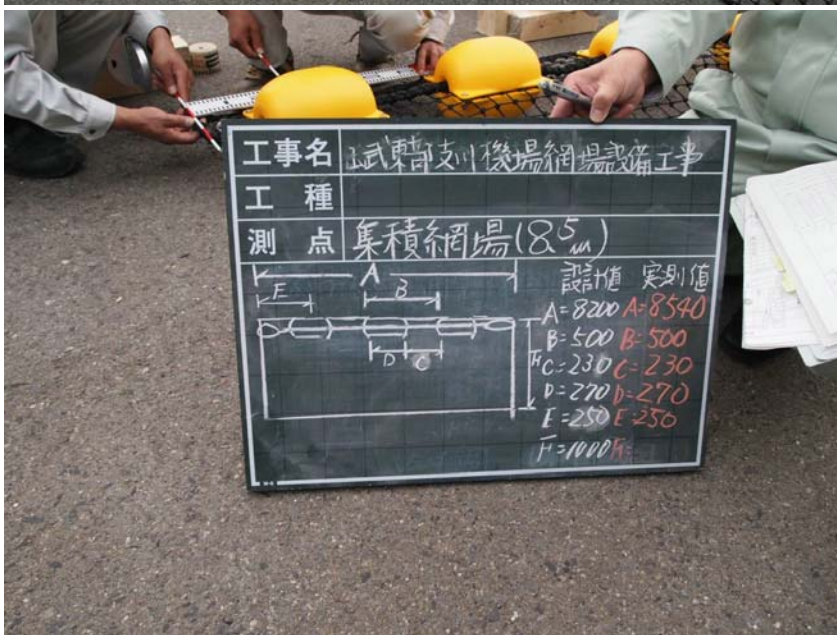 工事名 武東部支川機場網場設備工事
工種
測点 集積網場(8.5m)
A
E B
D C
F
設計値 実測値
A=8200 A=8540
B=500 B=500
C=230 C=230
D=270 D=270
E=250 E=250
F=1000 F=